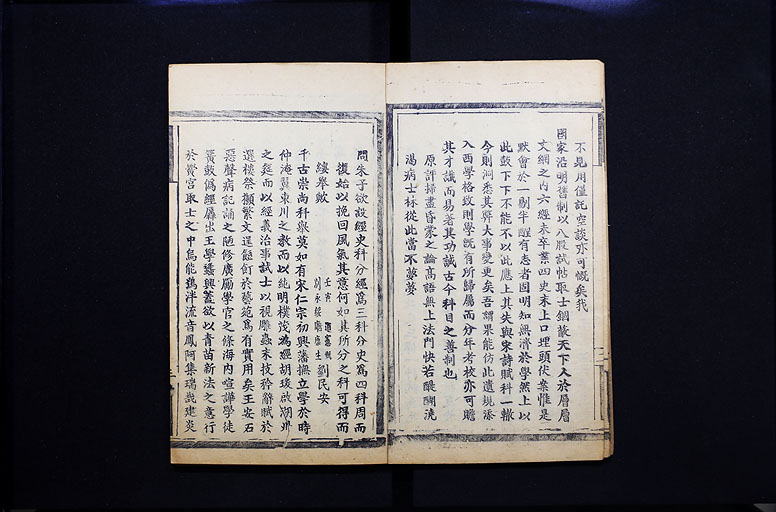 不見用僅託空談亦可慨矣我
國家沿明舊制以八股試帖取士錮蔽天下人於層層
文網之內六經未卒業四史未上口埋頭伏案惟是
默會於一剔半醒有志者固明知無濟於學然上以
此鼓下下不能不以此應上其失與宋詩賦科一轍
今則洞悉其弊大事變更矣吾謂果能仿此遺規添
入西學格致則學既有所歸屬而分年考校亦可瞻
其才識而易著其功誠古今科目之善制也
原評掃盡昏蒙之論高語無上法門快若醍醐澆
渴病士林從此當不夢夢
問朱子欲設經史科分經爲三科分史爲四科周而
復始以挽回風氣其意何如其所分之科可得而
縷舉歟
壬寅
劉民安
千古崇尚科舉莫如有宋仁宗初興藩撫立學於時
仲淹翼東川之教而以純明樸茂爲經胡瑗啟湖州
之筵而以經義治事試士以視雕蟲末技矜辭賦於
選樓祭獺繁文逞餖飣於藝苑爲有實用矣王安石
惡聲病記誦之陋修廣厲學官之條海内喧譁學徒
簧鼓僞經麕出王學蠭興蓋欲以青苗新法之意行
於黌宮取士之中烏能鷄泮流音鳳阿集瑞哉建炎